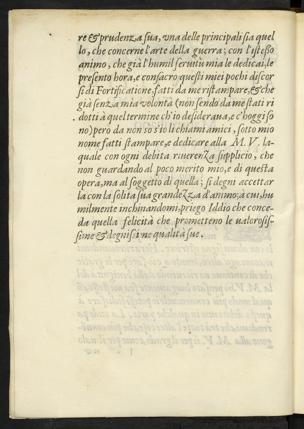 re & prudenza sua, una delle principali sia quel
lo, che concerne l'arte della guerra; con l'istesso
animo, che già l'humil servitù mia le dedicai, le
presento hora, e consacro questi miei pochi discor
si di Fortificatione fatti da me ristampare, & che
già senza mia volontà (non sendo da me stati ri
dotti à quel termine ch'io desiderava, e c'hoggi so
no) però da non sò s'io li chiami amici, sotto mio
nome fatti stampare, e dedicare alla M. V. la-
quale con ogni debita riverenza supplico, che
non guardando al poco merito mio, e di questa
opera, ma al soggetto di quella; si degni accettar
la con la solita sua grandezza d'animo; a cui hu
milmente inchinandomi, priego Iddio che conce-
da quella felicità che promettono le valorosis-
sime & degnissime qualità sue.